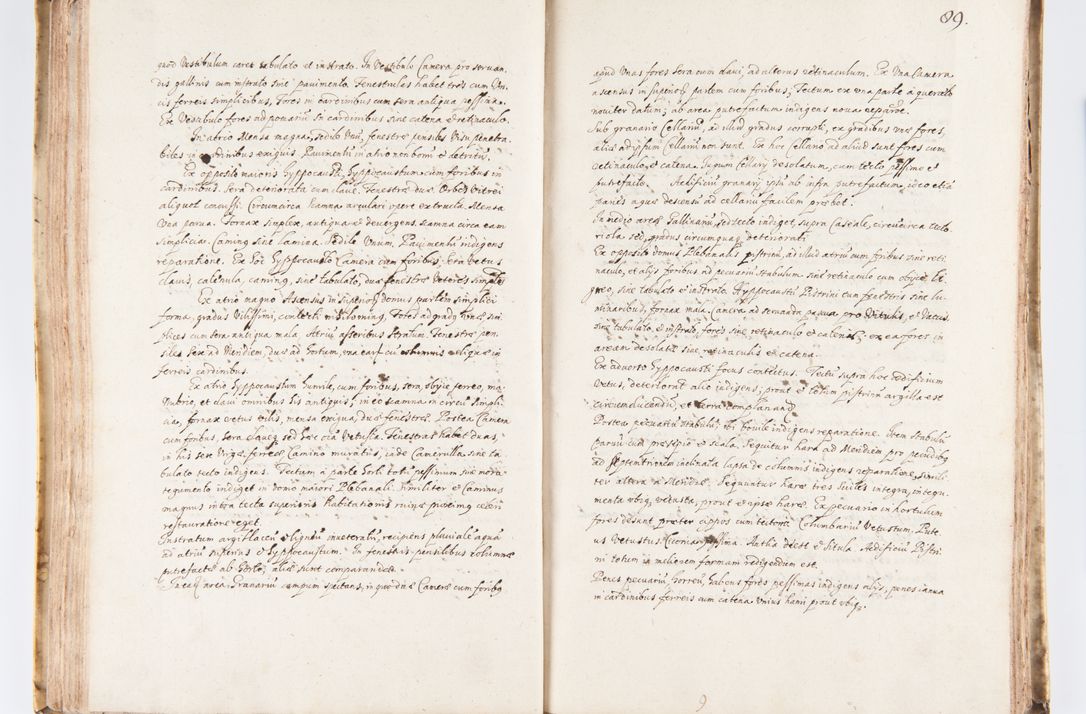 quod Vestibulum caret tabulato et instrato. In Vestibulo Camera pro servan,
dis gallinis cum instrato sine pavimento. Fenestrulas habet tres cum Un,
cis ferreis simplicibus, Fores in cardinibus cum sera antiqua pessima.
Ex Vestibulo fores ad pomariũ in cardinibus sine catena et retinaculo.
In atrio Mensa magna, sedile Unũ, fenestræ pensiles Visu penetra,
biles in cardinibus exiguis. Pavimenti in atrio non boni et detriti.
Ex opposito maioris Hyppocausti, Hyppocaustum cum foribus in
cardinibus. Sera deteriorata cum clave. Fenestræ duæ Orbes Vitrei
aliquot concussi. Circumcirca Scamna arculari opere extructa. Mensa
Una parva. Fornax simplex, antiqua devergens. Scamna circa eam
simplicia. Caming sine lamina. Sedile Unum. Pavimentũ indigens
reparatione. Ex hoc Hyppocausto Camera cum foribus, sera Vetus
clavis, catenula, caming, sine tabulato, duæ fenestræ Veteres simplices
Ex atrio magno Ascensus in superiorẽ domus partem simplici
forma, gradus Vilissimi, contecti Fores ad gradũ sim
plices cum sera antiqua mala. Atriũ asseribus stratum. Fenestræ pen,
siles sex ad Meridiem, duæ ad hortum, una earũ cũ columnis in
ferreis cardinibus.
Ex atrio Hyppocaustum humile, cum foribus, sera, obijce ferreo, ma,
nubrio, et clavi omnibus his antiquis, in eo scamna in circũ simpli,
cia, fornax vetus vilis, mensa exigua, duæ fenestræ. Postea Camera
cum foribus, sera sed hæc oĩa Vetusta. Fenestras habet duas,
in his sex Virgæ ferreæ, Camino muratus, inde Camerulla sine ta,
bulato tecto indigens. Tectum à parte horti toti pessimum sine mora
tegumento indiget in domo maiori Plebanali. Similiter et Caminus
magnus intra tecta superioris habitationis ruinæ proximg celeri
restauratione eget.
Instratum argillaceũ et ligneũ inveteratũ, recipiens pluviale aquã
ad atriũ inferius et Hyppocaustum. In fenestris pensilibus columnæ
putrefactæ ab horto, aliæ sunt comparandæ.
In ea area, Granariũ campum spectans, in quo duæ Cameræ cum foribg

89.
apud Unas fores sera cum clavi, ad alteras retinaculum. Ex Una Camera
ascensus in superiorẽ partem cum foribus; Tectum ex una parte à quercetis
noviter datum; ab area putrefactum indigens nova reparõe.
Sub granario Cellariũ, ad illud gradus corrupti, ex gradibus unæ fores,
aliæ ad ipsum Cellariũ non sunt. Ex hoc Cellario ad aliud sunt fores cum
retinaculo, et catena. Iugum Cellarij desolatum, cum tecto pessimo et
putrefacto. Aedificiũ granarij ipsũ ab infra putrefactum, ideo etiã
paries aquæ descensũ ad cellariũ facilem præbet.
In medio areæ Gallinariũ, sed tecto indiget, supra Caseale, circumcirca tecto
riola sed, gradus circumquag deteriorati.
Ex opposito domus Plebanalis pistrinũ, ad illud atriũ cum foribus sine reti
naculo, et alijs foribus ad pecuariũ stabulum sine retinaculo cum obijce li
gneo, sine tabulato et instrato. Hyppocaustũ Pistrini cum fenestris sine lu,
minaribus, fornax mala. Camera ad servanda pascua pro Vitulis, et Vaccis
sine tabulato et instrato, fores sine retinaculo et catenis; ex ea fores in
aream desolatæ sine retinaculis et catena.
Ex adverso Hyppocausti focus confectus. Tectũ supra hoc aedificium
Vetus, deterioratũ alio indigens; prout et totum pistrinũ argilla est
circumducendũ, et terra complanandũ.
Postea pecuariũ stabulũ, ibi bovile indigens reparatione. Item stabulũ
parvũ cum præsepio et scala. Sequitur hara ad Meridiem pro pecudibg
ad Septentrionem inclinata lapsa de columnis indigens reparatione, simili,
ter altera à Meridie. Sequuntur haræ tres suiles integræ, integu,
menta ubig vetusta, prout et ipsæ haræ. Ex pecuario in hortulum
fores desunt præter cippos cum tectorio. Columbariũ Vetustum. Pute,
us Vetustus, Ciconia pessima. Antlia deest et situla. Aedificiũ Pistri,
ni totum in meliorem formam redigendum est.
Penes pecuariũ, horreũ, habens fores pessimas indigens alijs, penes ianua
in cardinibus ferreis cum catena Unius hami prout ubig.
9